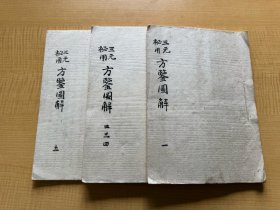 三元
秘用
方鑒圖解
一
三元
秘用
方鑒圖解
二三四
三元
秘用
方鑒圖解
五